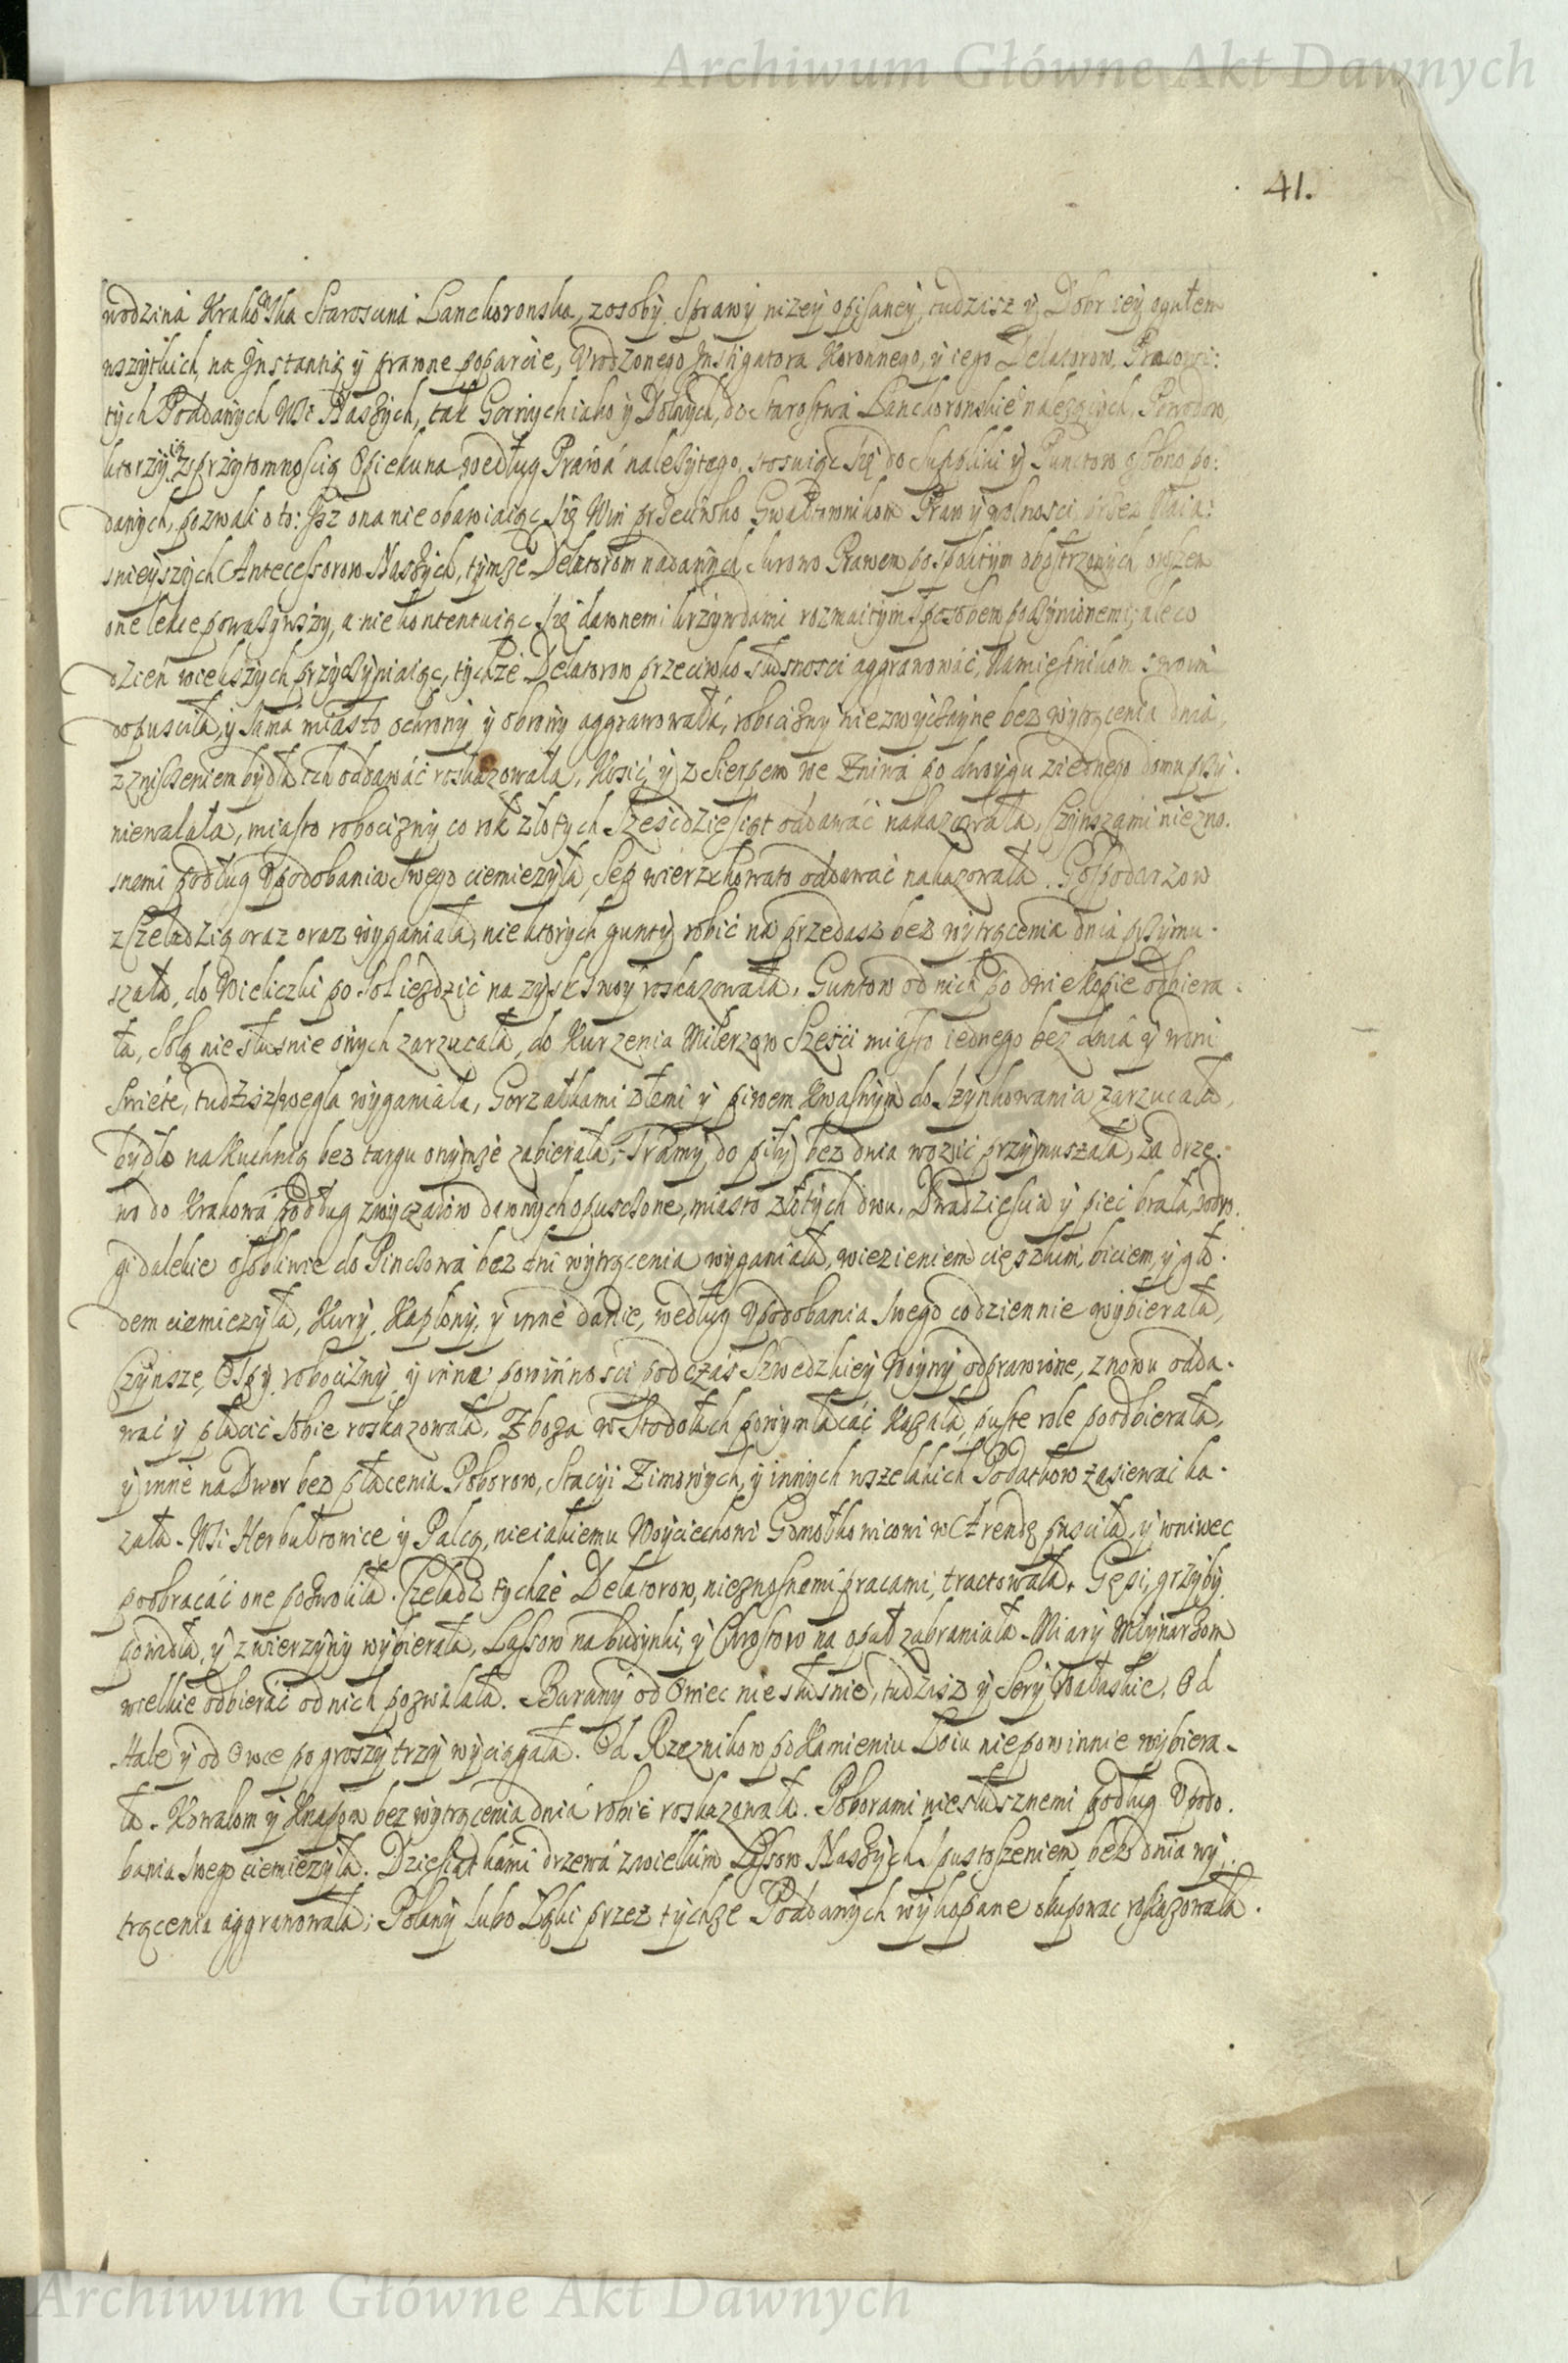 Archiwum Główne Akt Dawnych
41.
wodzina Krakowska Starościna Lanckoronska, z osoby Sprawy nizey opisaney, tudzisz y Dobr iey ogułem
wszytkich, na Jnstantią y prawne poparcie, Vrodzonego Jnstigatora Koronnego, y iego Delatorow, Pracowi:
tych Poddanych Wsi Naszych, tak Gornych iako y Dolnych, do Starostwa Lanckoronskie° należących, Powodow,
ktorzy ią z przytomnością Opiekuna według Prawa należytego, stosuiąc się do Suppliki y Punctow osobno po:
danych, pozwali o to: Jsz ona nie obawiaiąc się Win przeciwko Gwałtownikom Praw y wolnosci przez Naia:
snieyszych Antecessorow Naszych, tymże Delatorom nadanych surowo Prawem pospolitym obostrzonych, owszem
one lekce poważywszy, a nie kontentuiąc się dawnemi krzywdami rozmaitym sposobem poczynionemi, ale co
dzień wiekszych przyczyniaiąc, tychże Delatorow przeciwko słusnosci aggrawować, Namiestnikom swoim
dopusciła, y sama miasto ochrony y obrony aggrawowała, robocizny niezwyczayne bez wytrącenia dnia,
z zniszczeniem bydła ich oddawać roskazowała, Kosić y z Sierpem we Żniwa po dwoygu z iednego domu przy.
niewalała, miasto robocizny co rok złotych Sześćdziesiąt oddawać nakazowała, Czynszami niezno.
snemi podług Vpodobania swego ciemiezyła, Sep wierzchowato oddawać nakazowała. Gospodarzow
z Czeladzią oraz oraz wyganiała, niektorych gunty robić na przedasz bez wytrącenia dnia przymu.
szała, do Wieliczki po Sol iezdzić na zysk swoy roskazowała, Guntow od nich po dwie kopie odbiera.
ła, Solą niesłusnie onych zarzucała, do Kurzenia Milerzow Sześci miasto iednego bez dnia y w dni
Swięte, tudzisz węgla wyganiała, Gorzałkami złemi y piwem kwasnym do szynkowania zarzucała,
bydło na Kuchnią bez targu onymże zabierała, Tramy do piły bez dnia wozić przymuszała, za drze.
wo do Krakowa podług zwyczaiow dawnych opuszczone, miasto złotych dwu, Dwadziescia y pieć brała, podro.
gi dalekie osobliwie do Pinczowa bez dni wytrącenia wyganiała, wiezieniem cięszkim, biciem, y gło.
dem ciemiezyła, Kury, Kapłony, y inne danie, według Vpodobania swego codziennie wybierała,
Czynsze, Osepy, robocizny y inne powinnosci podczas Szwedzkiey Woyny odprawione, znowu odda.
wać y płacić sobie roskazowała, Zboża w Stodołach powymłacać kazała, puste role poodbierała,
y inne na Dwor bez płacenia Poborow, Stacyi Zimowych, y innych wszelakich Podatkow zasiewać ka.
zała. Wsi Herbułtowice y Palcą, nieiakiemu Woyciechowi Gomołkowicowi w Arendę pusciła, y wniwec
poobracać one pozwoliła. Czeladz tychże Delatorow, nieznosnemi pracami, tractowała, Gępi, grzyby
powidła, y zwierzyny wybierała, Lassow na budynki, y Chrostow na opał zabraniała. Miary Młynarzom
wielkie odbierać od nich pozwalała. Barany od Owiec niesłusnie, tudzisz y Sery Wałaskie, Od
Hale y od Owce po groszy trzy wyciągała. Od Rzeznikow po Kamieniu Łoiu niepowinnie wybiera.
ła. Kowalom y Knapom bez wytrącenia dnia robić roskazowała. Poborami niesłusznemi podług Vpodo.
bania swego ciemiezyła. Dziesiątkami drzewa z wielkim Lassow Naszych spustoszeniem bez dnia wy.
trącenia aggrawowała; Polany lubo Łąki przez tychże Poddanych wykopane okupowac roskazowała.
Archiwum Główne Akt Dawnych